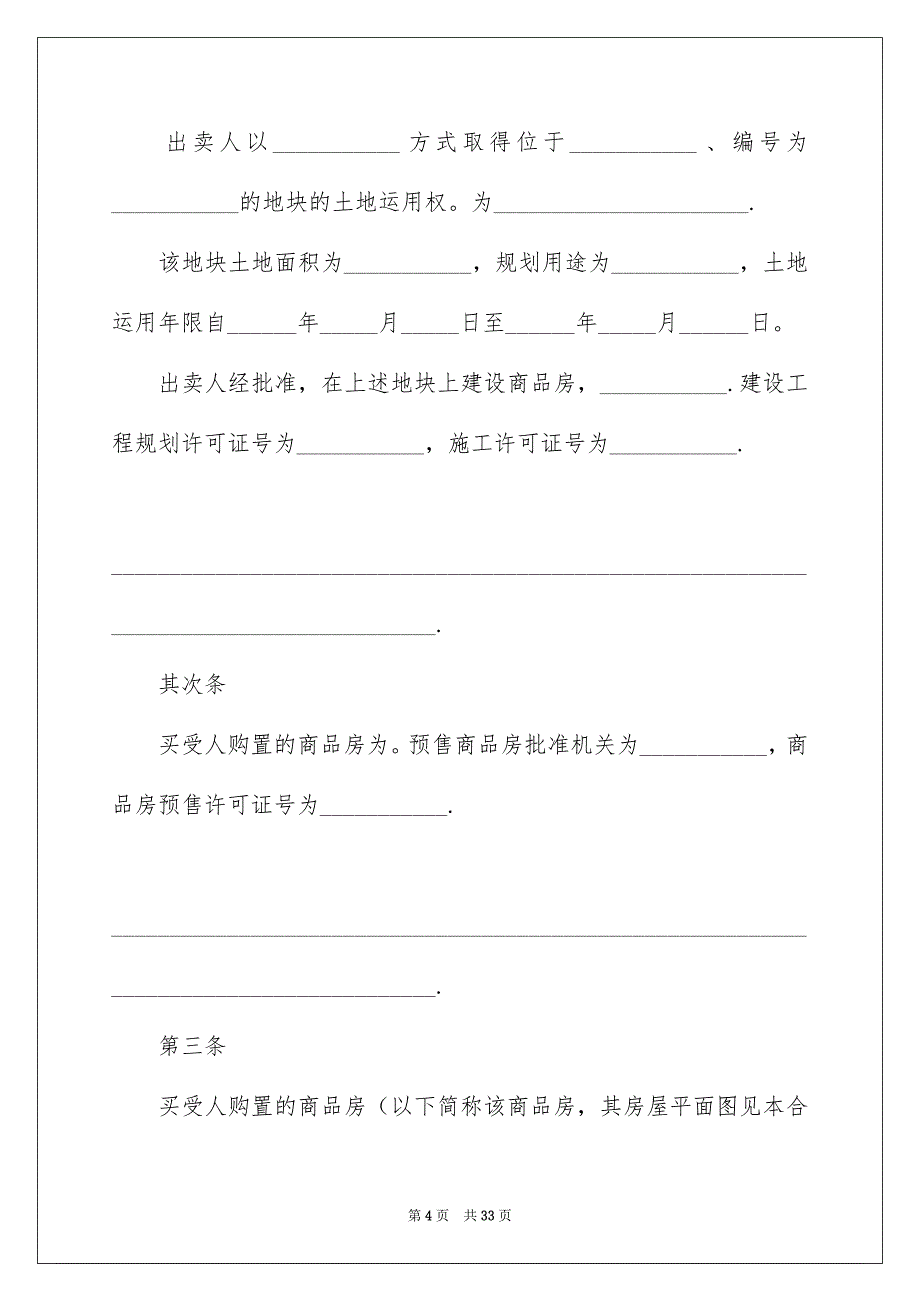 出卖人以___________方式取得位于___________、编号为
___________的地块的土地运用权。为______________________.
该地块土地面积为___________，规划用途为___________，土地
运用年限自______年_____月_____日至______年_____月______日。
出卖人经批准，在上述地块上建设商品房，___________.建设工
程规划许可证号为___________，施工许可证号为___________.
____________________________________________________________
____________________________.
其次条
买受人购置的商品房为。预售商品房批准机关为___________，商
品房预售许可证号为___________.
____________________________________________________________
____________________________.
第三条
买受人购置的商品房（以下简称该商品房，其房屋平面图见本合
第 4 页 共 33 页